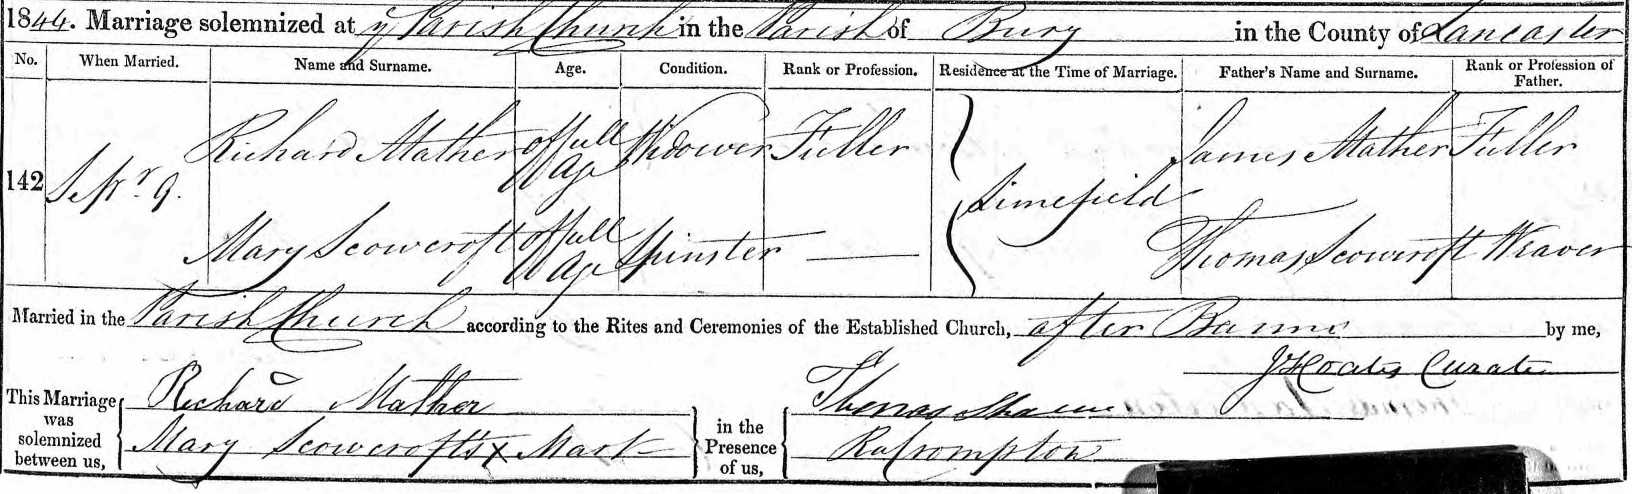 1844. Marriage solemnized at ye Parish Church in the Parish of Bury in the County of Lancaster
No. When Married. Name and Surname. Age. Condition. Rank or Profession. Residence at the Time of Marriage. Father's Name and Surname. Rank or Profession of Father.
142 Sepr. 9. Richard Mather of full Age Widower Fuller Limefield James Mather Fuller
Mary Scowcroft of full Age Spinster — Thomas Scowcroft Weaver
Married in the Parish Church according to the Rites and Ceremonies of the Established Church, after Banns by me,
Coates Curate
This Marriage was solemnized between us, Richard Mather in the Presence of us, Thomas
Mary Scowcroft's x Mark Crompton